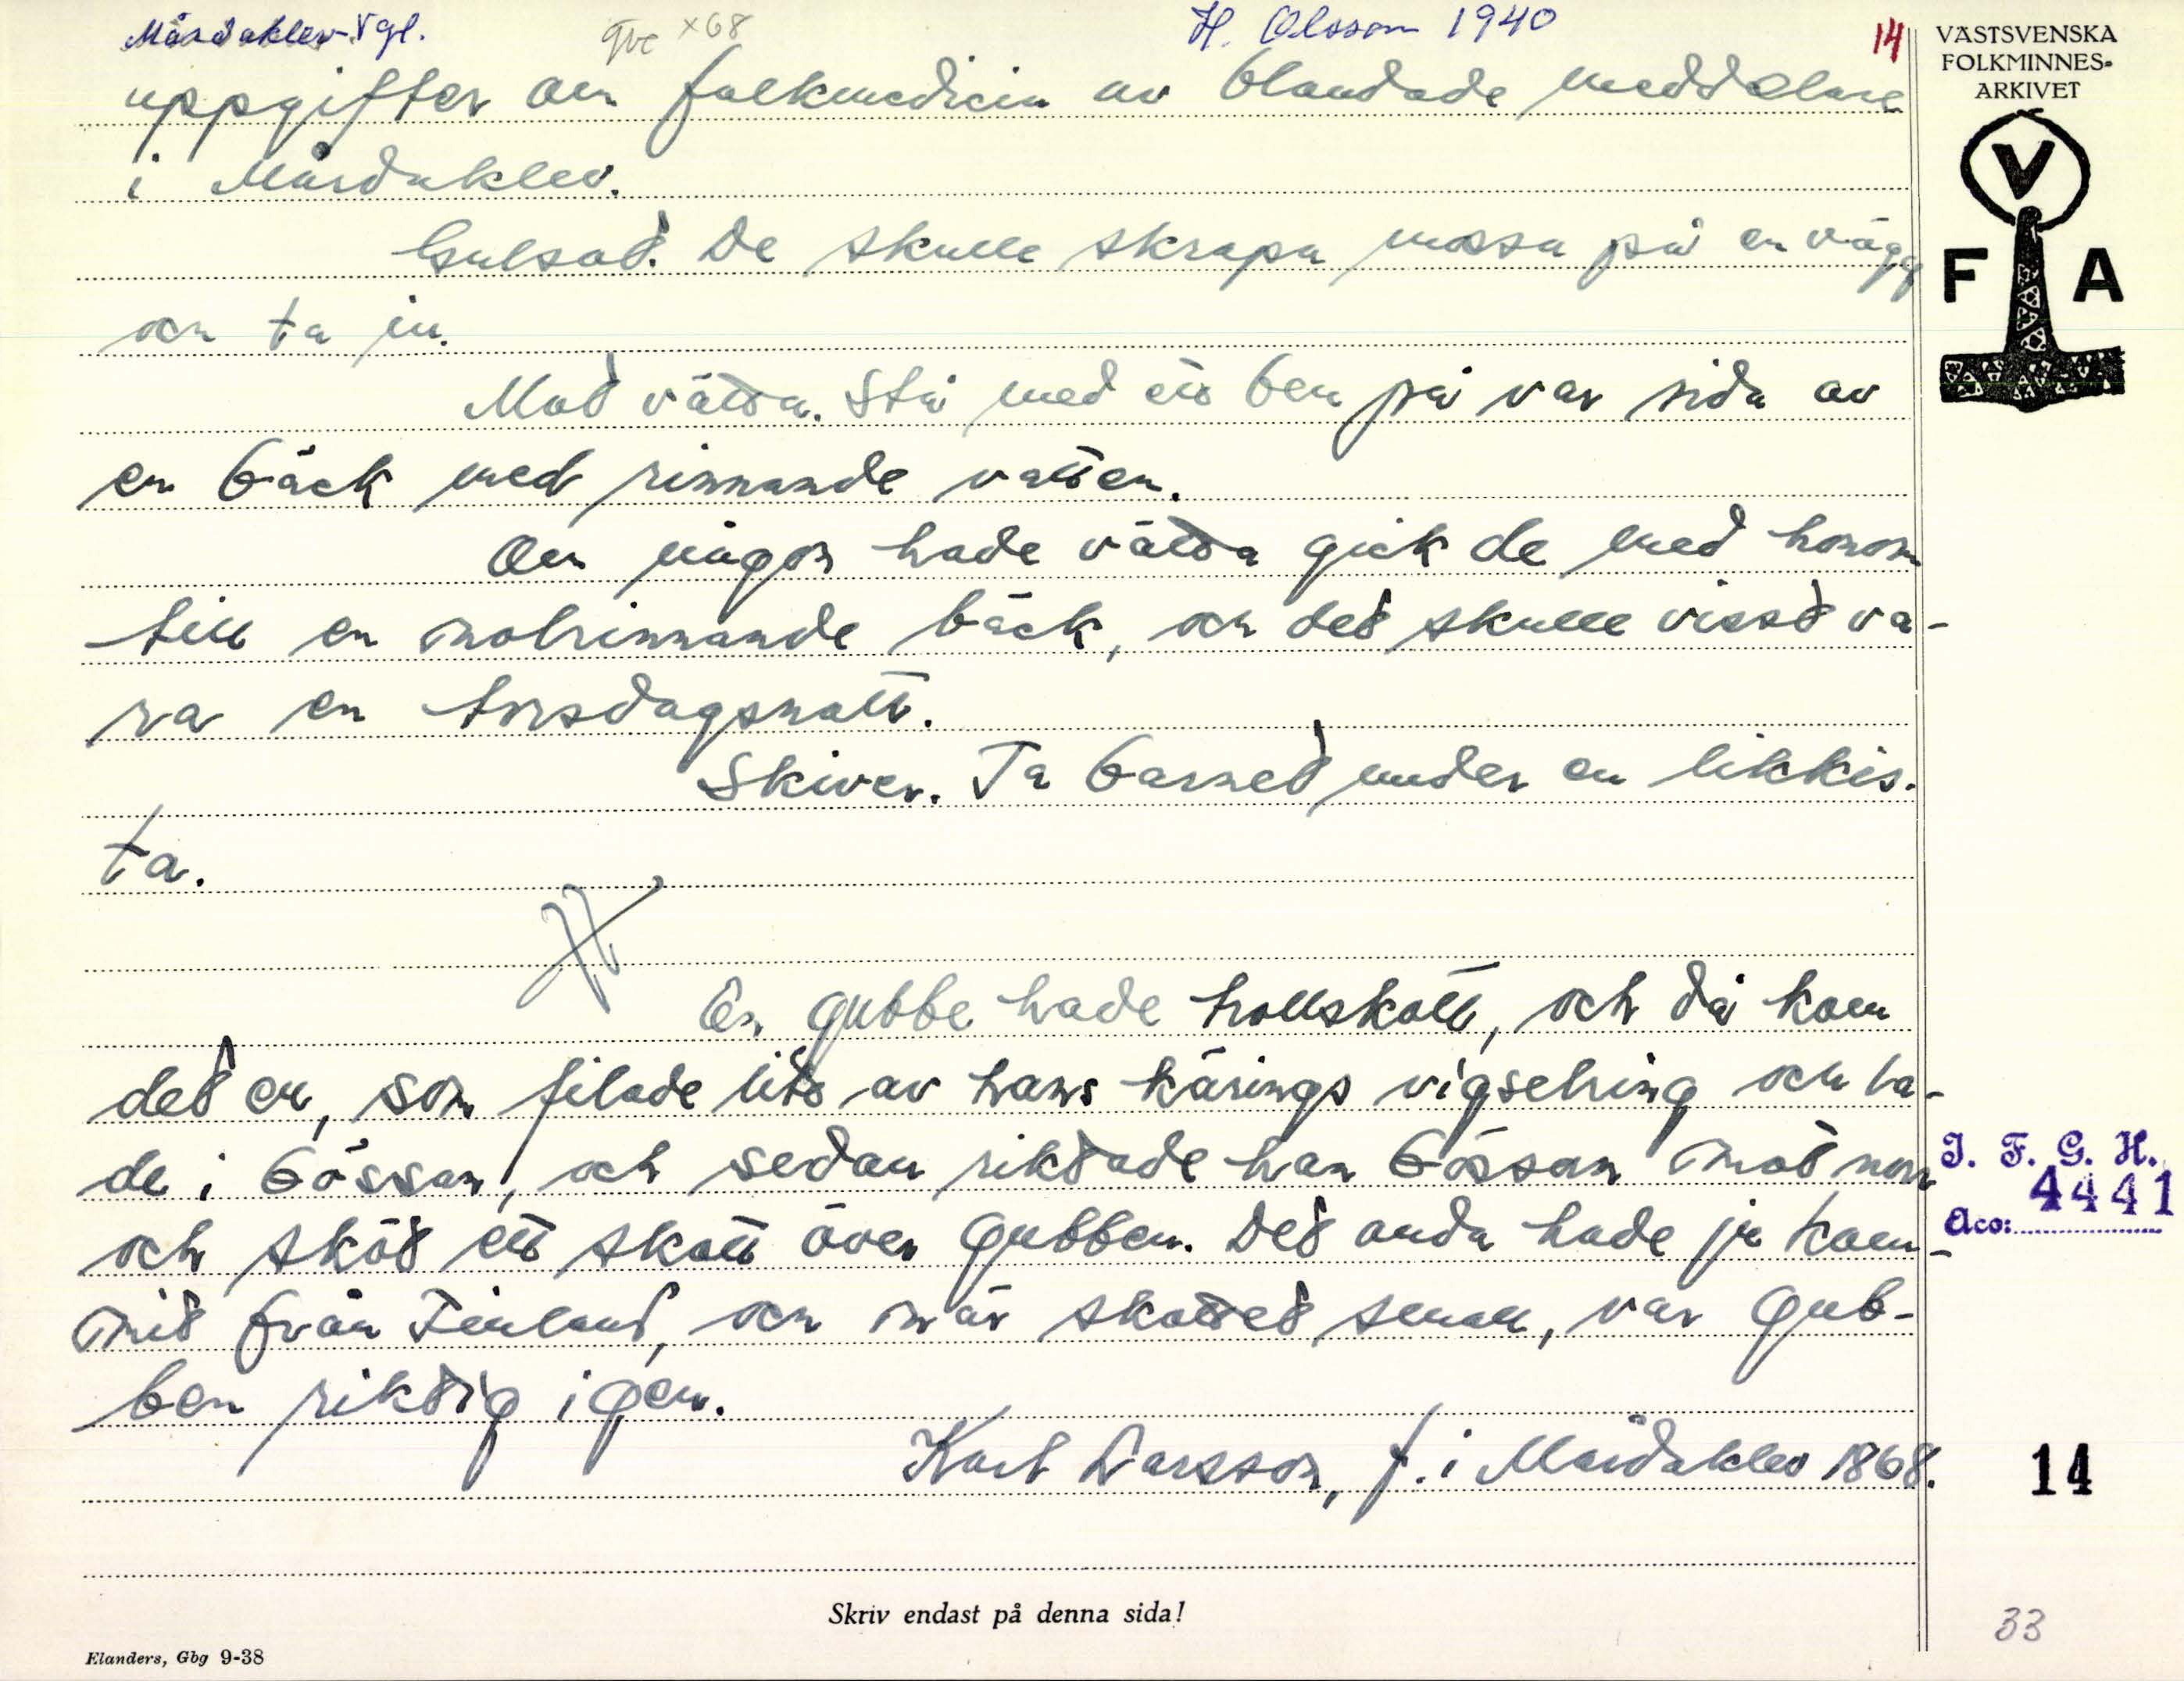 Mårdaklev Vgl.
×68
H. Olsson 1940
14
VÄSTSVENSKA
FOLKMINNES-
ARKIVET
V
F A
uppgifter om folkmedicin av blandade meddelare
i Mårdaklev.
Gulsot. De skulle skrapa mossa på en vägg
och ta in.
Mot vätta. Stå med ett ben på var sida av
en bäck med rinnande vatten.
Om någon hade vätta gick de med honom
till en motrinnande bäck, och det skulle visst va-
ra en torsdagsnatt.
Skiver. Ta barnet under en likkis-
ta.
En gubbe hade trollskott, och då kom
det en, som filade lite av hans kärings vigselring och ha-
de i bössan, och sedan riktade han bössan mot norr
och sköt ett skott över gubben. Det onda hade ju kom-
mit från Finland, och när skottet small, var gub-
ben riktig igen.
Karl Larsson, f. i Mårdaklev 1868.
I. F. G. H.
4441
Acc:
14
Skriv endast på denna sida!
33
Elanders, Gbg 9-38